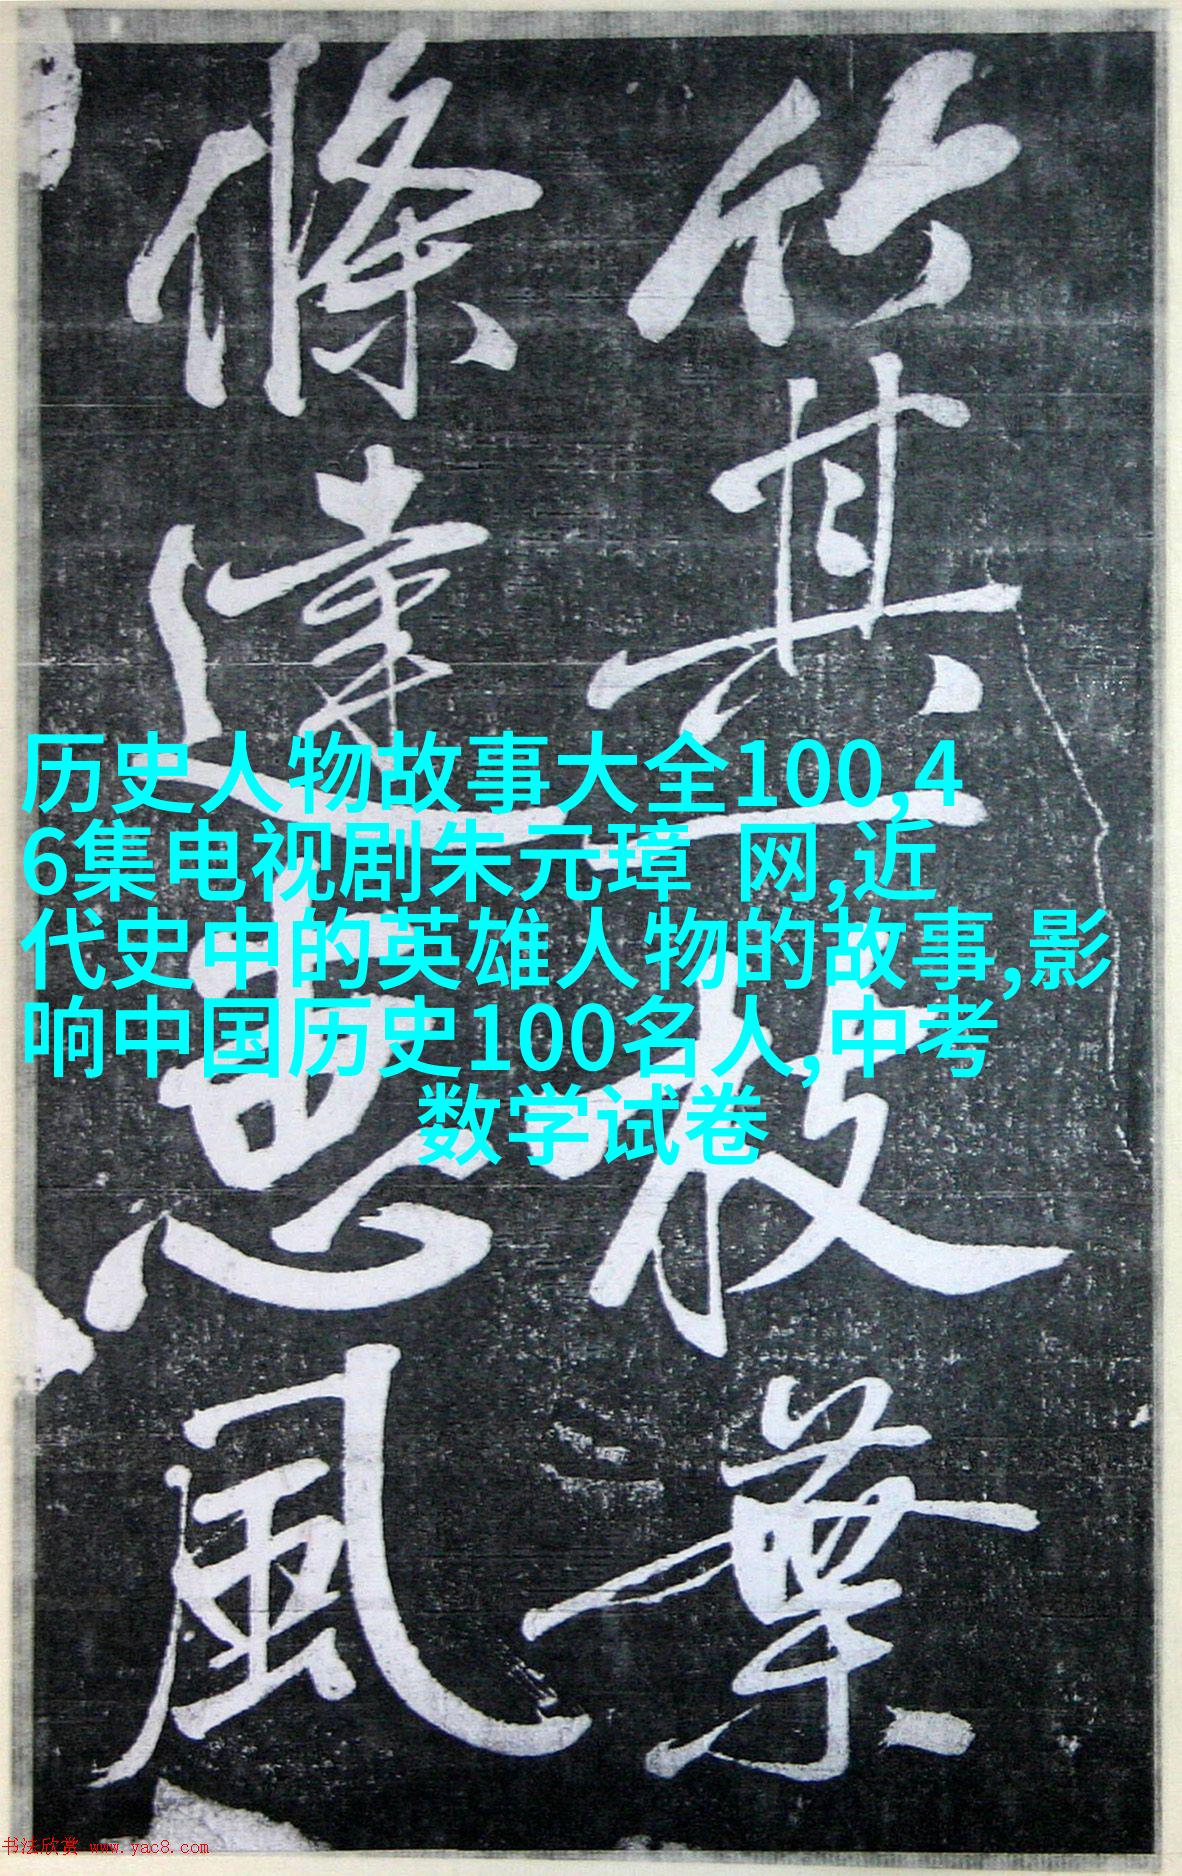 竹其枝葉
條達惠風
历史人物故事大全100,4
6集电视剧朱元璋 网,近
代史中的英雄人物的故事,影
响中国历史100名人,中考
数学试卷
书法欣赏 www.yac8.com